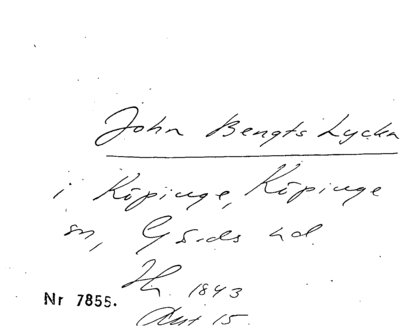 John Bengts Lycka
i Köpinge, Köpinge
sn, Gärds hd.
1843
Nr 7855.
15.